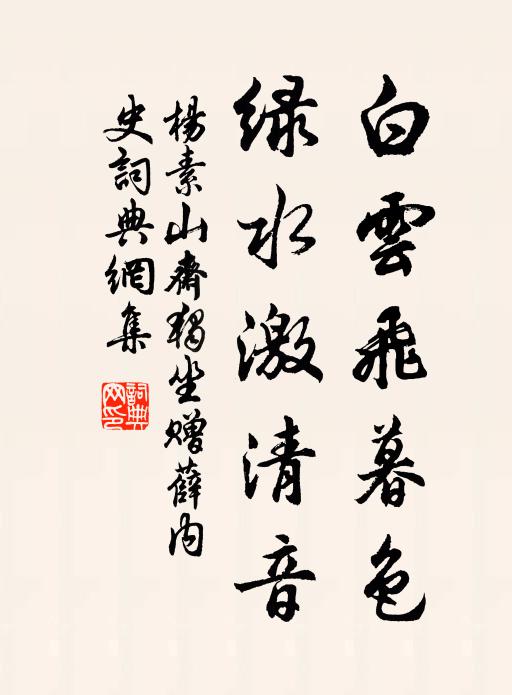 白雲飛暮色
绿水激清音
楊素山齋獨坐赠薛内
史詞典網集
詞典
网印